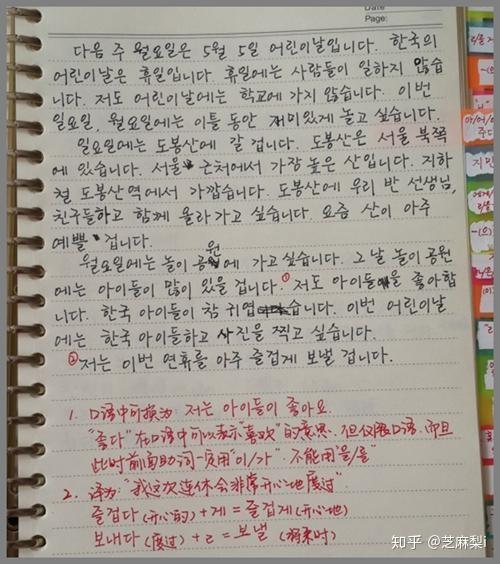 Date
Page:
다음 주 월요일은 5월 5일 어린이날입니다. 한국의
어린이날은 휴일입니다. 휴일에는 사람들이 일하지 않습
니다. 저도 어린이날에는 학교에 가지 않습니다. 이번
일요일, 월요일에는 이틀 동안 재미있게 놀고 싶습니다.
일요일에는 도봉산에 갈 겁니다. 도봉산은 서울 북쪽
에 있습니다. 서울 근처에서 가장 높은 산입니다. 지하
철 도봉산역에서 가깝습니다. 도봉산에 우리 반 선생님,
친구들하고 함께 올라가고 싶습니다. 요즘 산이 아주
예쁠 겁니다.
월요일에는 놀이 공원에 가고 싶습니다. 그 날 놀이 공원
에는 아이들이 많이 있을 겁니다. ①저도 아이들을 좋아합
니다. 한국 아이들이 참 귀엽습니다. 이번 어린이날
에는 한국 아이들하고 사진을 찍고 싶습니다.
②저는 이번 연휴를 아주 즐겁게 보낼 겁니다.
1. 口语中可换为: 저는 아이들이 좋아요.
"좋다"在口语中可以表示"喜欢"的意思. 但仅限口语. 而且
此时前面助词一定用"이/가". 不能用을/를
2. 译为: "我这次连休会非常开心地度过".
즐겁다 (开心的) + 게 = 즐겁게 (开心地)
보내다 (度过) + ㄹ = 보낼 (将来时)
知乎 @芝麻梨i